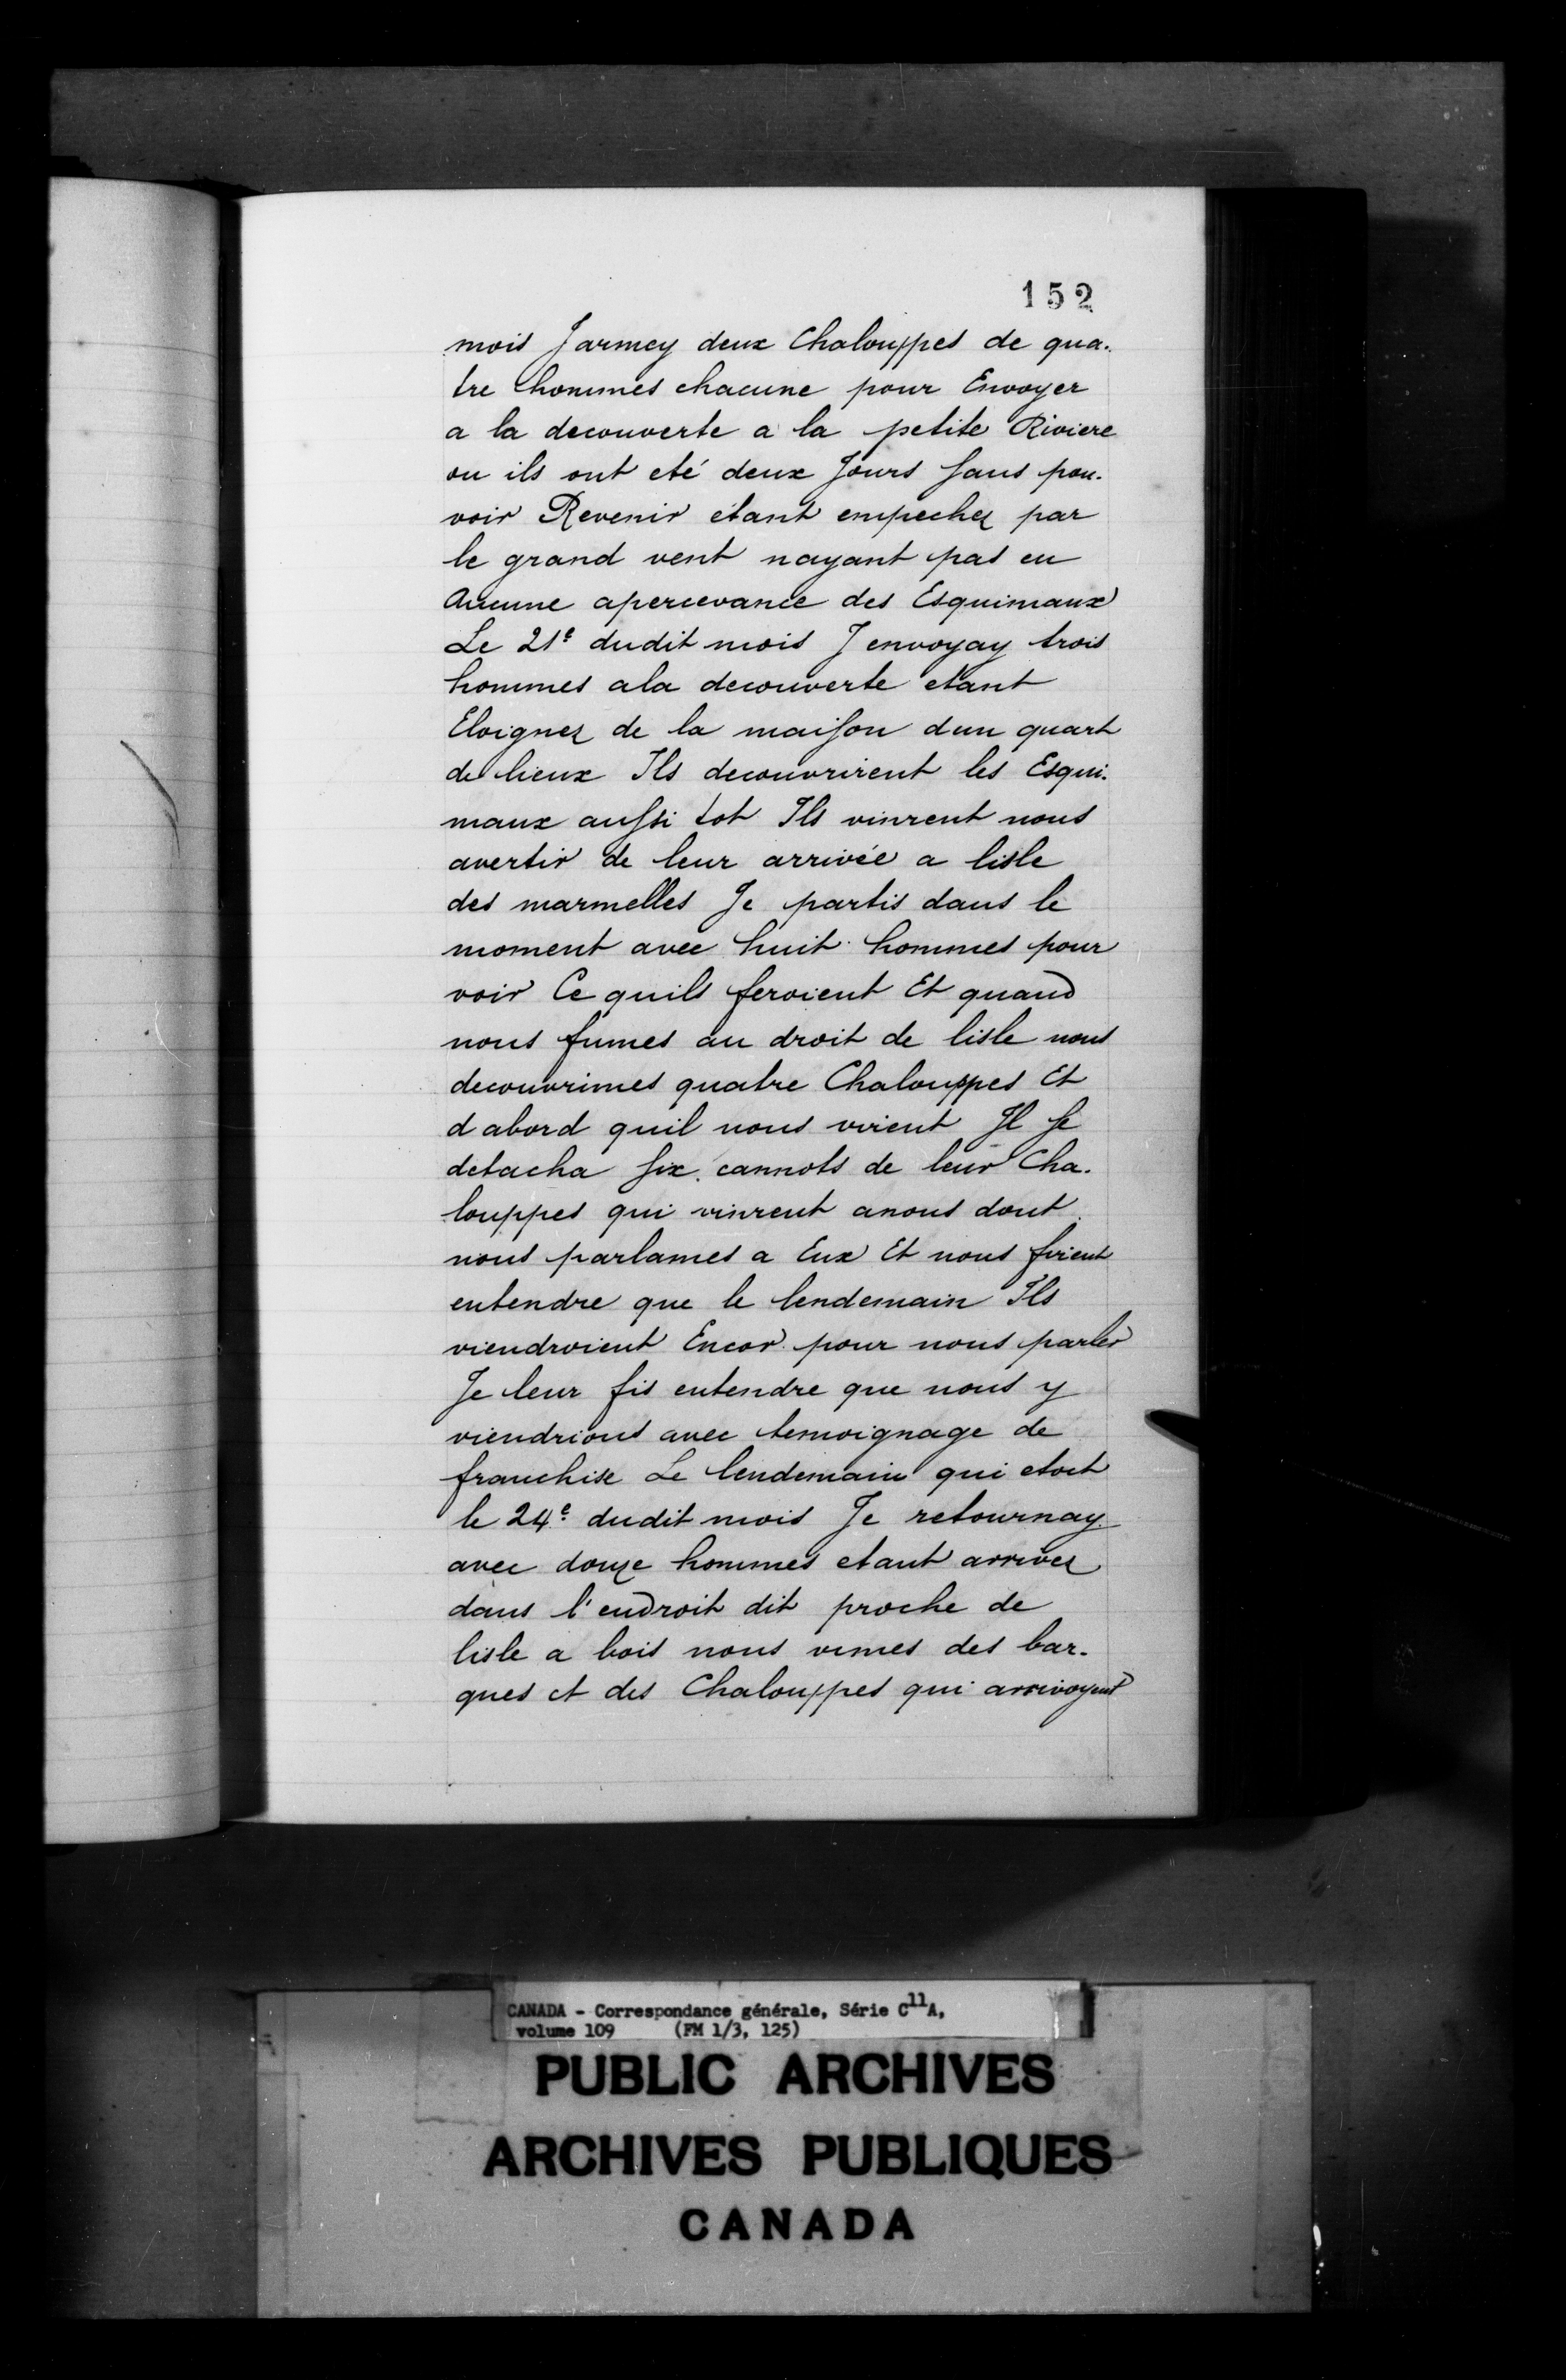 152
mois Jarmey deux Chalouppes de qua-
tre hommes chacune pour Envoyer
a la decouverte a la petite Riviere
ou ils ont eté deux Jours sans pou-
voir Revenir etant empechez par
le grand vent nayant pas eu
Aucune apercevance des Esquimaux
Le 21e dudit mois J envoyay trois
hommes ala decouverte etant
Eloignez de la maison dun quart
de lieux Ils decouvrirent les Esqui-
maux aussi tot Ils vinrent nous
avertir de leur arrivée a lisle
des marmelles Je partis dans le
moment avec huit hommes pour
voir Ce quils feroient Et quand
nous fumes au droit de lisle nous
decouvrimes quatre Chalouppes Et
d abord quil nous virent Il se
detacha six cannots de leur Cha-
louppes qui vinrent anous dont
nous parlames a Eux Et nous firent
entendre que le lendemain Ils
viendroient Encor pour nous parler
Je leur fis entendre que nous y
viendrions avec temoignage de
franchise Le lendemain qui etoit
le 24e dudit mois Je retournay
avec douze hommes etant arrivez
dans l'endroit dit proche de
lisle a bois nous vimes des bar-
ques et des Chalouppes qui arrivoyent
CANADA - Correspondance générale, Série C11A,
volume 109 (FM 1/3, 125)
PUBLIC ARCHIVES
ARCHIVES PUBLIQUES
CANADA